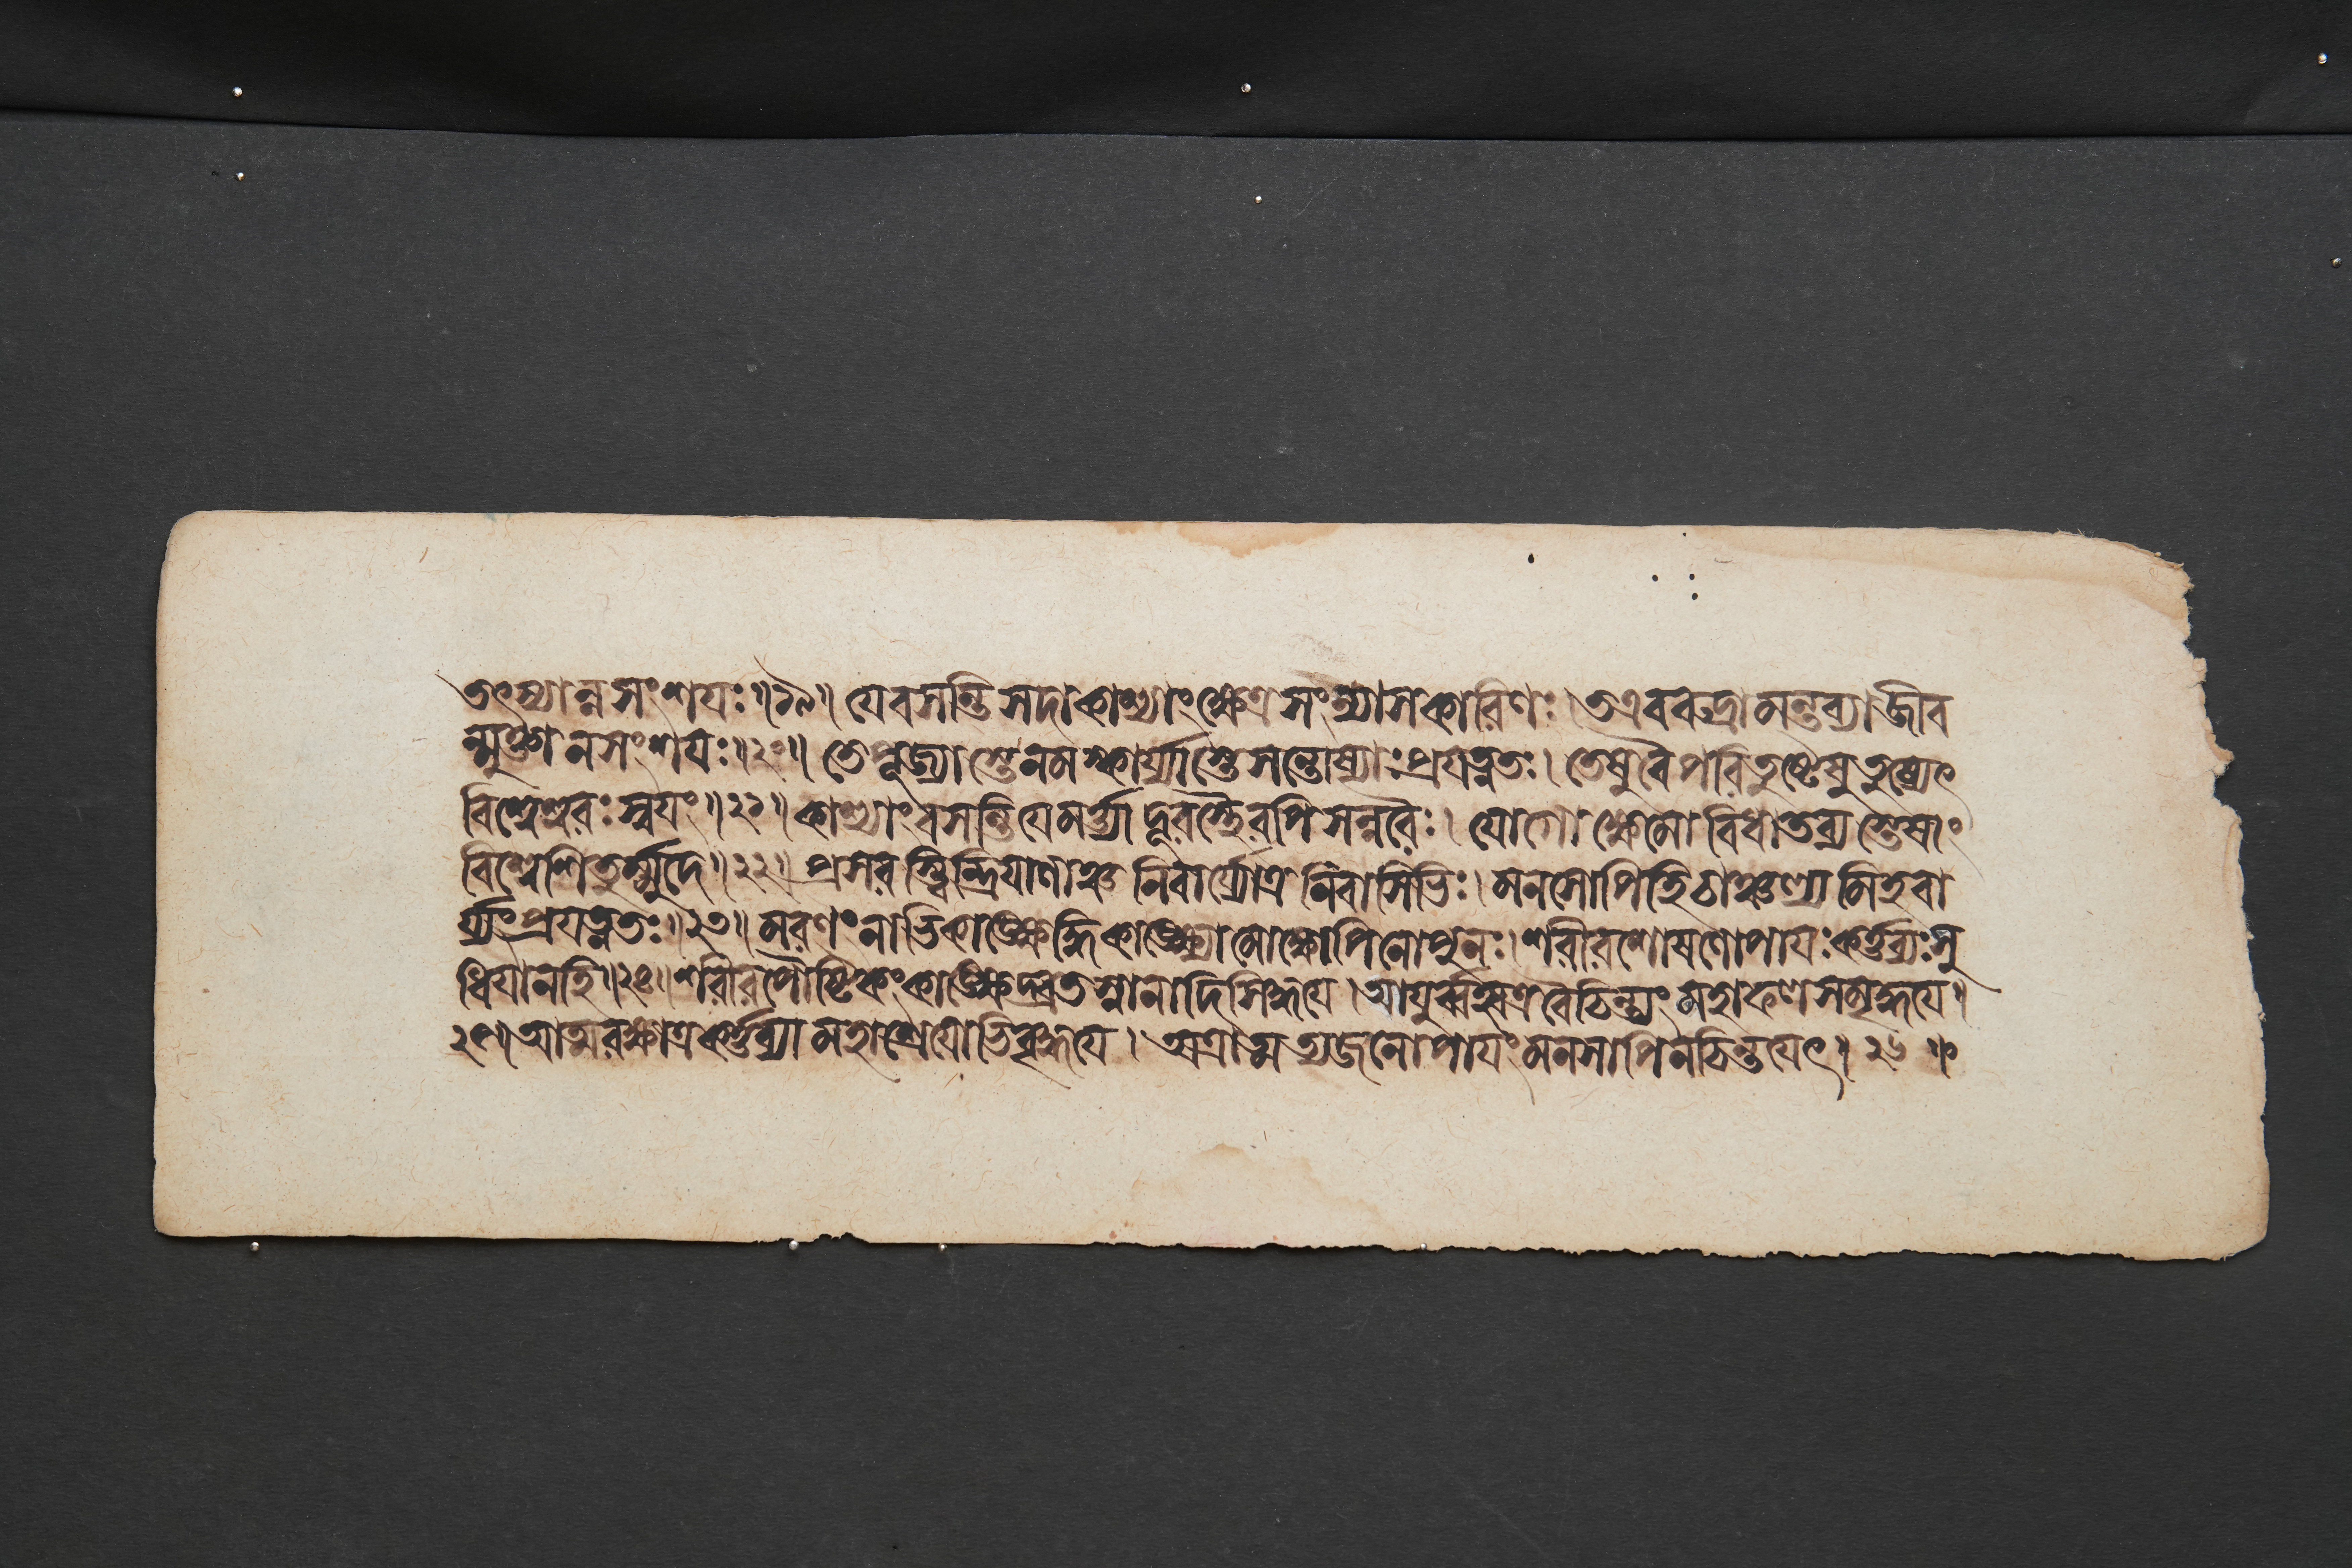 তৎস্যান্নসংশযঃ॥১৯॥ যেবসন্তি সদা কাশ্যাং ক্ষেত্রসংন্যাসকারিণঃ। তএবরুদ্রা মন্তব্যা জীব
ন্মুক্তা নসংশযঃ॥২০॥ তেপূজ্যাস্তেনমস্কার্য্যাস্তেসন্তোষ্যাঃপ্রযত্নতঃ। তেষুবৈপরিতুষ্টেষুতুষ্যেৎ
বিশ্বেশ্বরঃ স্বযং॥২১॥ কাশ্যাং বসন্তিযেমর্ত্ত্যা দূরস্তৈরপিসন্নরৈঃ। যোগো ক্ষেমো বিধাতব্যস্তেষাং
বিশ্বেশিতুর্ম্মুদে॥২২॥ প্রসরস্ত্বিন্দ্রিযাণাঞ্চ নিবার্য্যোত্র নিবাসিভিঃ। মনসোপিহিচাঞ্চল্যমিহবা
র্য্যংপ্রযত্নতঃ॥২৩॥ মরণংনাভিকাঙ্ক্ষেদ্ধিকাঙ্ক্ষ্যোমোক্ষোপিনোপুনঃ। শরীরশোষণোপাযঃ কর্ত্তব্যঃসু
ধিযানহি॥২৪॥ শরীরপৌষ্টিকংকাঙ্ক্ষেদ্ব্রতস্নানাদিসিদ্ধযে। আযুর্ব্বহ্বত্রবৈচিন্ত্যং মহাফলসমৃদ্ধযে॥
২৫॥ আত্মরক্ষাত্রকর্ত্তব্যা মহাশ্রেযোভিবৃদ্ধযে। অত্রাত্মত্যজনোপাযংমনসাপিনচিন্তযেৎ॥ ২৬